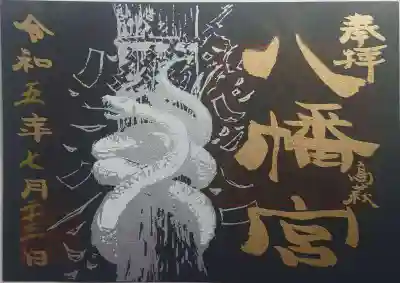 奉拝
八幡宮
令和五年七月十三日